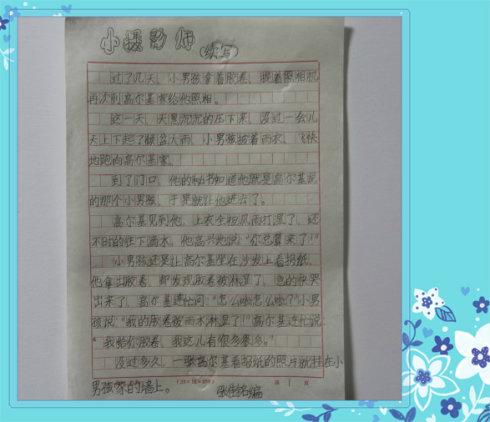 小摄影师
(续写)
过了几天,小男孩拿着胶卷,抱着照相机
再次到高尔基家给他照相。
这一天,天黑沉沉的压下来,没过一会儿
天上下起了倾盆大雨,小男孩披着雨衣,飞快
地跑向高尔基家。
到了门口,他的秘书知道他就是高尔基说
的那个小男孩,于是就让他进去了。
高尔基见到他,上衣全被风雨打湿了,还
不时的往下滴水,他高兴地说:"你总算来了!"
小男孩还是让高尔基坐在沙发上看报纸,
他拿出胶卷,却发现胶卷被淋湿了,急的快哭
出来了,高尔基连忙问:"怎么啦怎么啦?"小男
孩说:"我的胶卷被雨水淋湿了!"高尔基连忙说:
"我给你胶卷,我这儿有很多很多。"
没过多久,一张高尔基看报纸的照片就挂在小
男孩家的墙上。
第 1 页